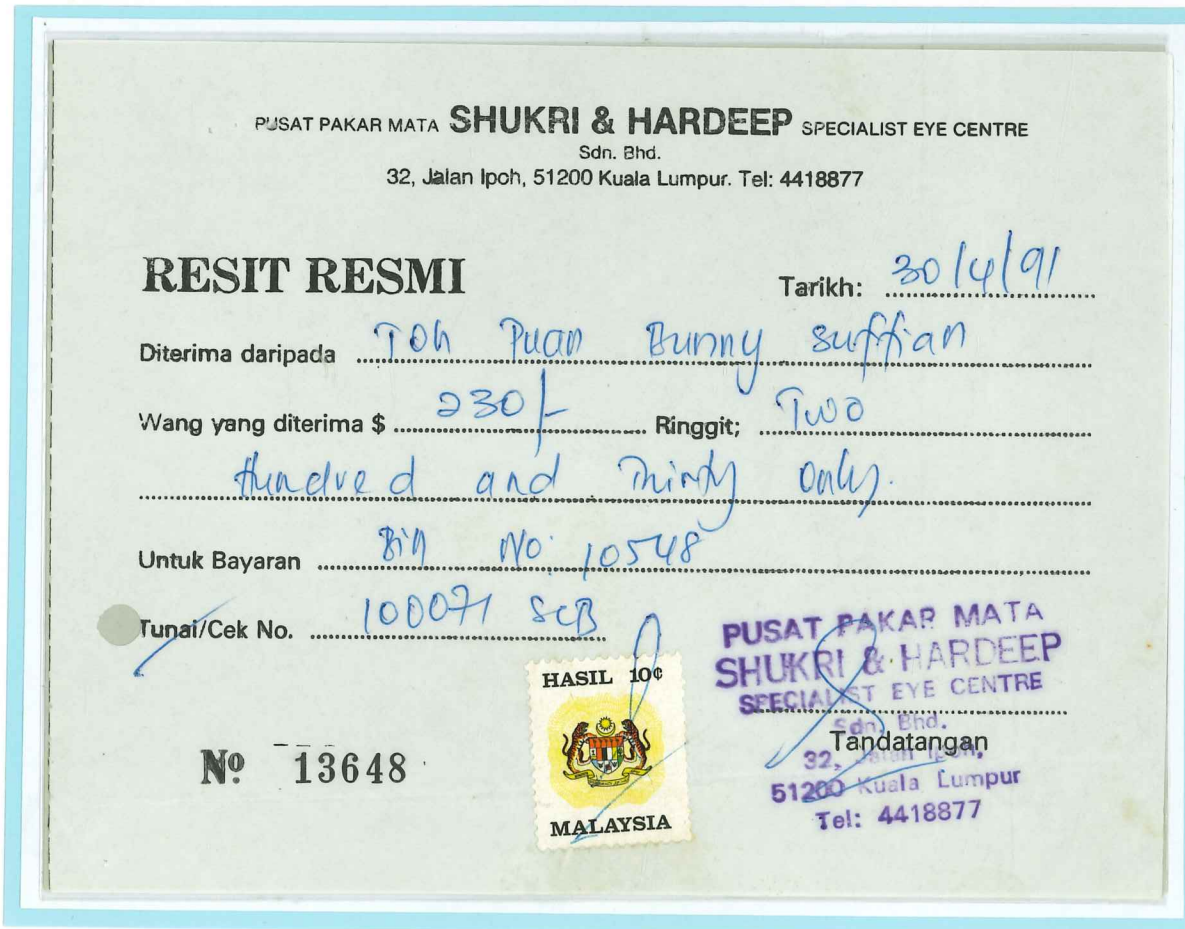 PUSAT PAKAR MATA SHUKRI & HARDEEP SPECIALIST EYE CENTRE
Sdn. Bhd.
32, Jalan Ipoh, 51200 Kuala Lumpur. Tel: 4418877
RESIT RESMI
Tarikh: 30/4/91
Diterima daripada Toh Puan Bunny Suffian
Wang yang diterima $ 230/- Ringgit; Two
Hundred and Thirty Only.
Untuk Bayaran Bill No: 10548
Tunai/Cek No. 100071 SCB
HASIL 10¢
MALAYSIA
PUSAT PAKAR MATA
SHUKRI & HARDEEP
SPECIALIST EYE CENTRE
Sdn. Bhd.
Tandatangan
32, Jalan Ipoh,
51200 Kuala Lumpur
Tel: 4418877
Nº 13648